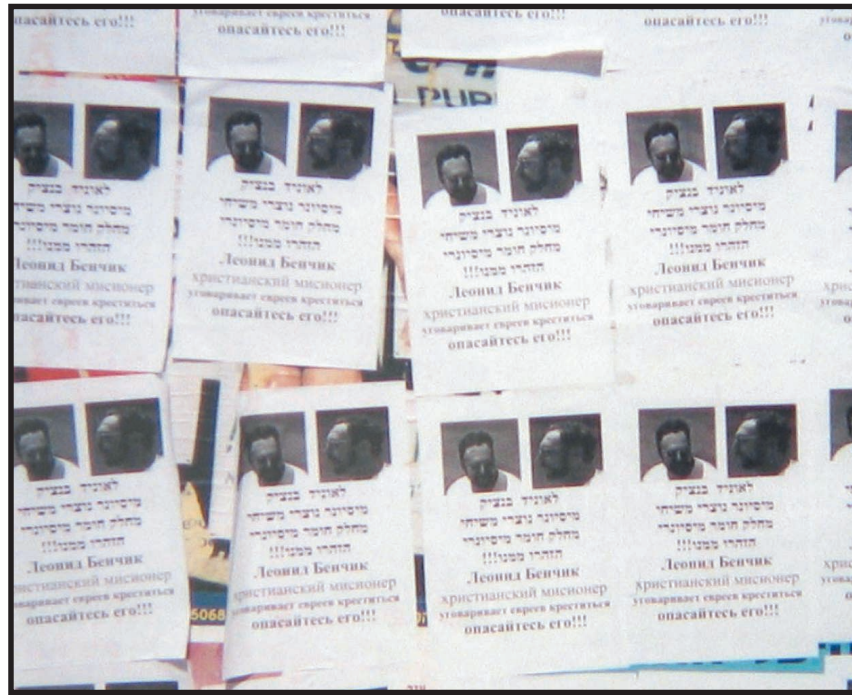 опасайтесь его!!!
уговаривает евреев креститься
опасайтесь его!!!
опасайтесь его!!!
опасайтесь его!!!
PUR
לאוניד בנציק
מיסיונר נוצרי משיחי
מחלק חומר מיסיונרי
הזהרו ממנו!!!
Леонид Бенчик
христианский мисионер
уговаривает евреев креститься
опасайтесь его!!!
לאוניד בנציק
מיסיונר נוצרי משיחי
מחלק חומר מיסיונרי
הזהרו ממנו!!!
Леонид Бенчик
христианский мисионер
уговаривает евреев креститься
опасайтесь его!!!
לאוניד בנציק
מיסיונר נוצרי משיחי
מחלק חומר מיסיונרי
הזהרו ממנו!!!
Леонид Бенчик
христианский мисионер
уговаривает евреев креститься
опасайтесь его!!!
לאוניד בנציק
מיסיונר נוצרי משיחי
מחלק חומר מיסיונרי
הזהרו ממנו!!!
Леонид Бенчик
христианский мисионер
уговаривает евреев креститься
опасайтесь его!!!
לאוניד בנציק
מיסיונר נוצרי משיחי
מחלק חומר מיסיונרי
הזהרו ממנו!!!
Леонид Бенчик
христианский мисионер
уговаривает евреев креститься
опасайтесь его!!!
לאוניד בנציק
מיסיונר נוצרי משיחי
מחלק חומר מיסיונרי
הזהרו ממנו!!!
Леонид Бенчик
христианский мисионер
уговаривает евреев креститься
опасайтесь его!!!
לאוניד בנציק
מיסיונר נוצרי משיחי
מחלק חומר מיסיונרי
הזהרו ממנו!!!
Леонид Бенчик
христианский мисионер
уговаривает евреев креститься
опасайтесь его!!!
לאוניד בנציק
מיסיונר נוצרי משיחי
מחלק חומר מיסיונרי
הזהרו ממנו!!!
Леонид Бенчик
христианский мисионер
уговаривает евреев креститься
опасайтесь его!!!
5068